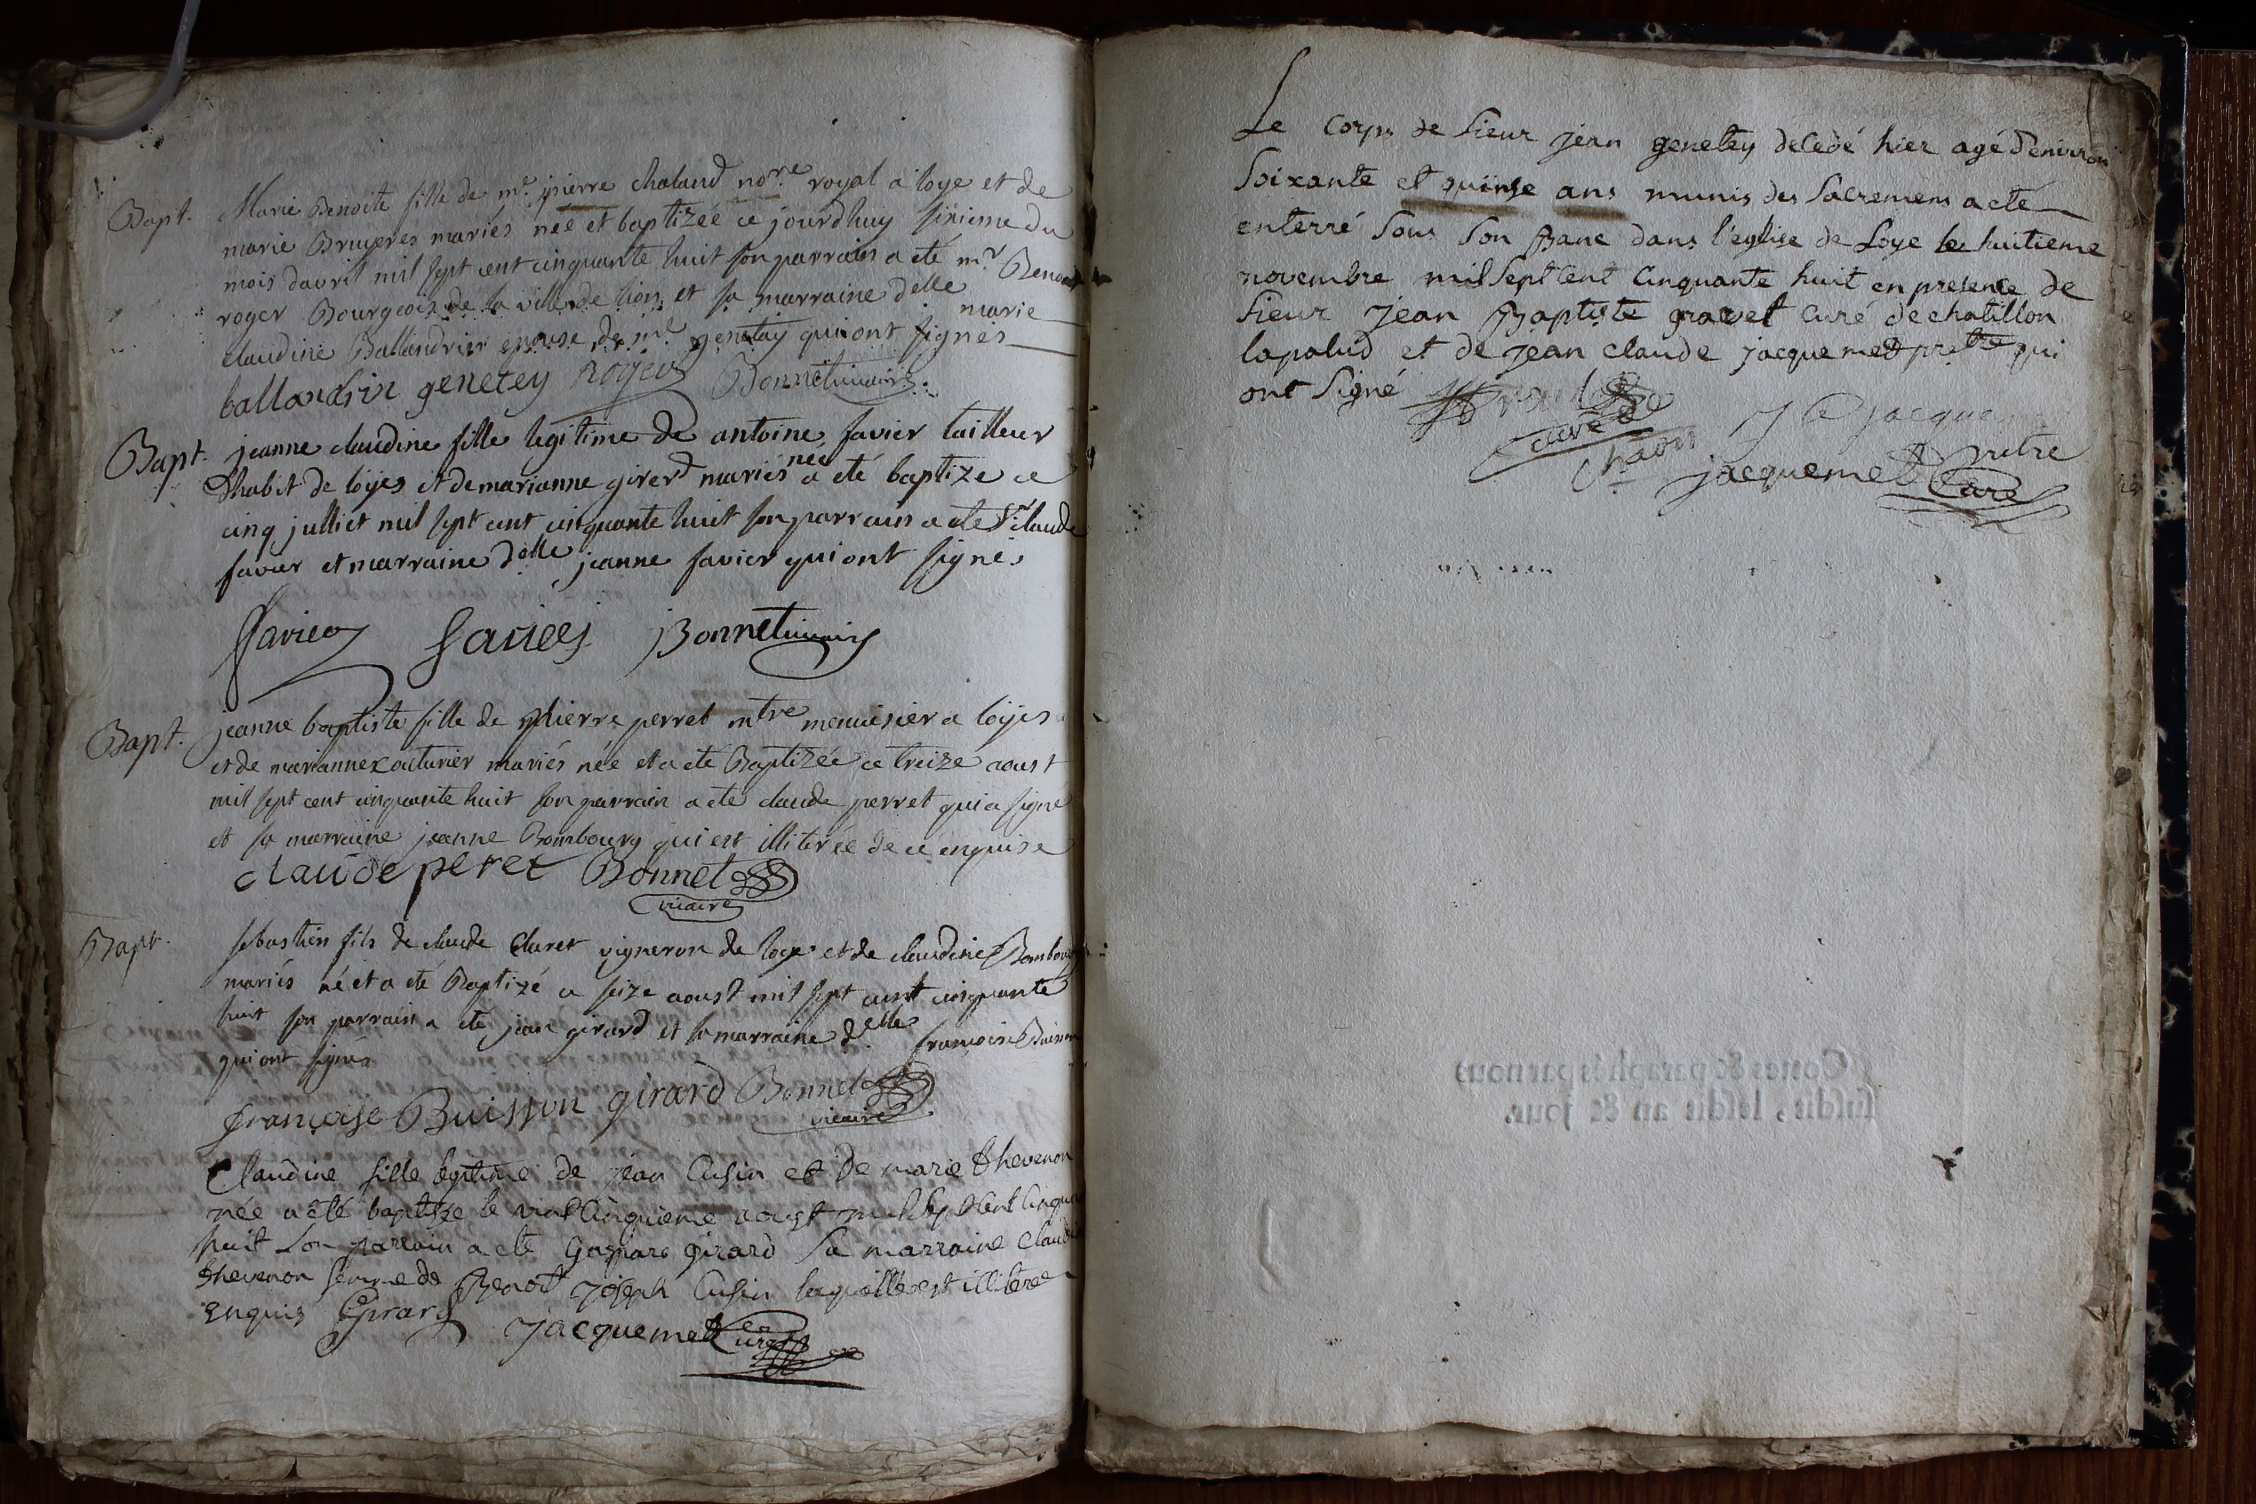 Bapt. Marie Benoite fille de me. pierre chaland nore royal a loye et de
marie Bruyeres mariés née et baptizée ce jourdhuy sixieme du
mois davril mil sept cent cinquante huit son parrain a eté mr Benoit
roger Bourgeois de la ville de lion et sa marraine delle marie
claudine Ballandrin epouse de mr. genetay qui ont signés
ballandrin genetey roger Bonnet vicaire
Bapt. jeanne claudine fille legitime de antoine favier tailleur
dhabit de loyes et de marianne girerd mariés née a eté baptize ce
cinq julliet mil sept cent cinquante huit son parrain a ete Sr. claude
favier et marraine delle jeanne favier qui ont signés
favier favier Bonnet vicaire
Bapt. jeanne baptiste fille de pierre perret mtre menuisier a loyes
et de marianne couturier mariés née et a eté Baptizée ce treize aoust
mil sept cent cinquante huit son parrain a ete claude perret qui a signé
et sa marraine jeanne Bombourg qui est illiterée de ce enquise
claude peret Bonnet
vicaire
Bapt. sebastien fils de claude Claret vigneron de loye et de claudine
mariés né et a eté Baptizé ce seize aoust mil sept cent cinquante
huit son parrain a ete jean girard et sa marraine delle francoise Buisson
qui ont signés
françoise Buisson girard Bonnet
vicaire
Claudine fille legitime de jean Cusin et de marie thevenon
née a eté baptisze le vint Cinquieme aoust mil Sept Cent
huit Son parrain a ete Gaspard girard Sa marraine
thevenon femme de Benoit joseph Cusin laquelle est illiterée
enquis Girard jacquemet Curé
Le Corps de Sieur jean genetey decedé hier agé d'environ
Soixante et quinse ans munis des Sacremens a eté
enterré Sous Son Banc dans l'eglise de Loye le huitieme
novembre mil Sept Cent Cinquante huit en presence de
Sieur jean Baptiste gravet Curé de chatillon
lapalud et de jean claude jacquemet pretre qui
ont Signé
curé de
J C jacquemet
pretre
jacquemet Curé
Cottés & paraphés par nous
susdit, lesdit an & jour.